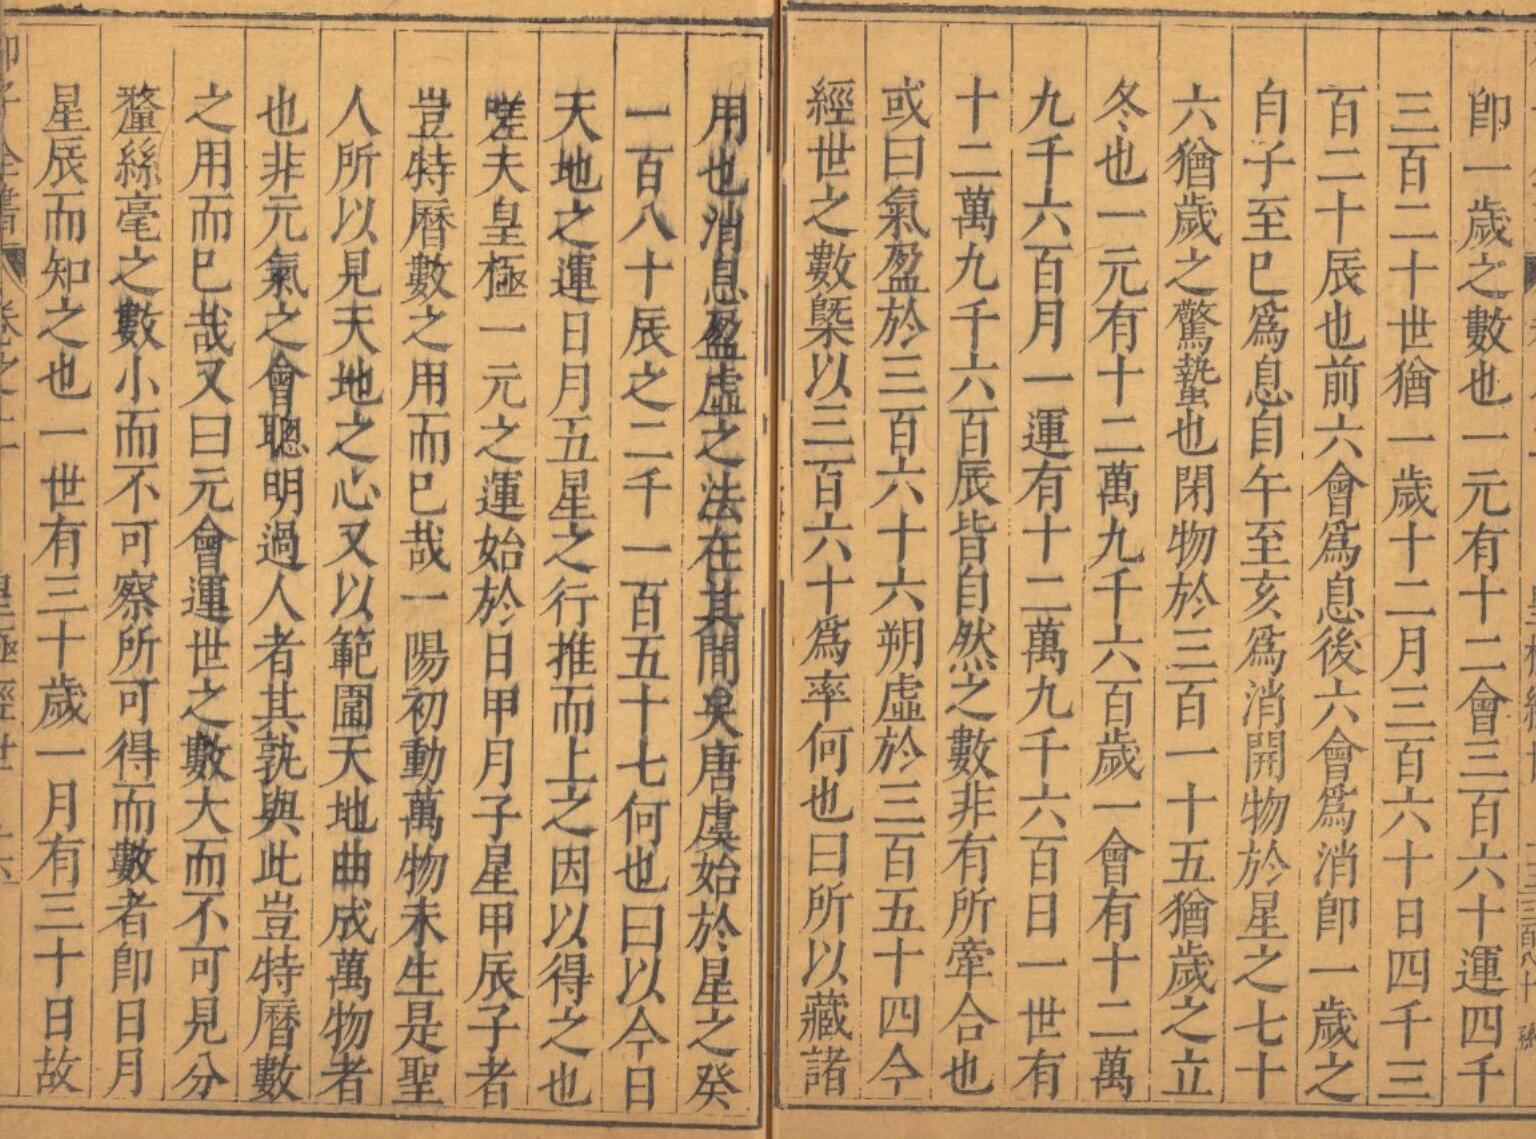 即一歲之數也一元有十二會三百六十運四千
三百二十世猶一歲十二月三百六十日四千三
百二十辰也前六會爲息後六會爲消即一歲之
自子至巳爲息自午至亥爲消開物於星之七十
六猶歲之驚蟄也閉物於三百一十五猶歲之立
冬也一元有十二萬九千六百歲一會有十二萬
九千六百月一運有十二萬九千六百日一世有
十二萬九千六百辰皆自然之數非有所牽合也
或曰氣盈於三百六十六朔虛於三百五十四今
經世之數槩以三百六十爲率何也曰所以藏諸
用也消息盈虛之法在其間矣唐虞始於星之癸
一百八十辰之二千一百五十七何也曰以今日
天地之運日月五星之行推而上之因以得之也
嗟夫皇極一元之運始於日甲月子星甲辰子者
豈特曆數之用而巳哉一陽初動萬物未生是聖
人所以見天地之心又以範圍天地曲成萬物者
也非元氣之會聰明過人者其孰與此豈特曆數
之用而巳哉又曰元會運世之數大而不可見分
釐絲毫之數小而不可察所可得而數者即日月
星辰而知之也一世有三十歲一月有三十日故
卷之十
皇極經世